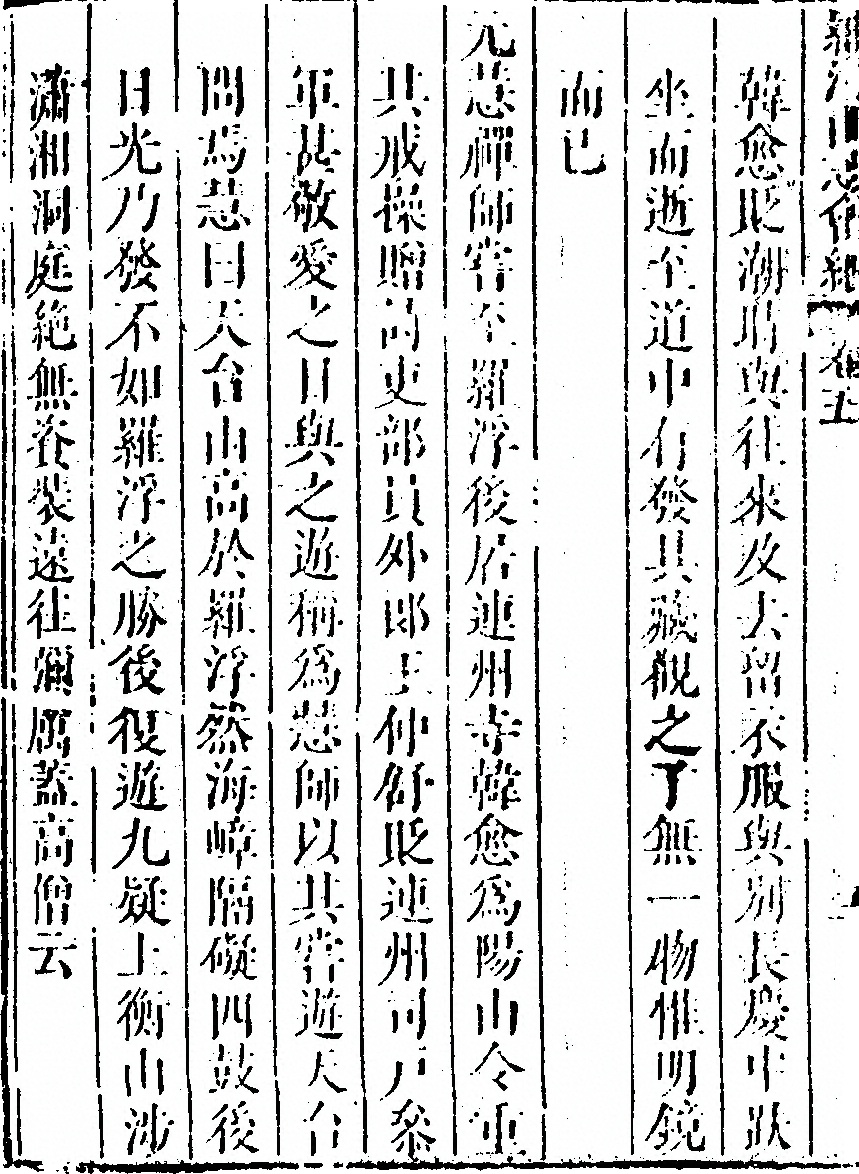 羅浮山志會編　卷五
韓愈貶潮州與往來及去留衣服與別長慶中趺
坐而逝至道中有發其藏觀之了無一物惟明鏡
而已
元慧禪師嘗至羅浮後居連州寺韓愈爲陽山令重
其戒操贈詩吏部員外郎王仲舒貶連州司戶參
軍甚敬愛之日與之遊稱爲慧師以其嘗遊天台
問焉慧曰天台山高於羅浮然海嶂隔礙四鼓後
日光乃發不如羅浮之勝後復遊九疑上衡山涉
瀟湘洞庭絶無衣裝遠往瀾厲蓋高僧云